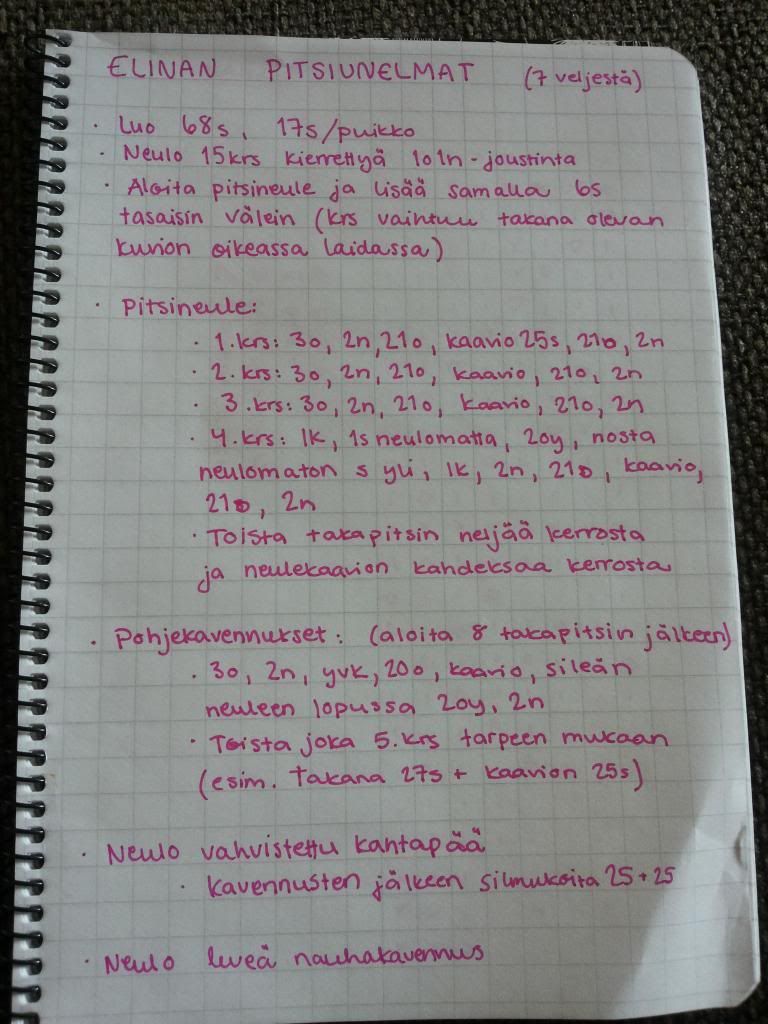 ELINAN PITSIUNELMAT (7 veljestä)
· Luo 68s, 17s/puikko
· Neulo 15krs kierrettyä 1o1n-joustinta
· Aloita pitsineule ja lisää samalla 6s
tasaisin välein (krs vaihtuu takana olevan
kuvion oikeassa laidassa)
· Pitsineule:
· 1.krs: 3o, 2n, 21o, kaavio 25s, 21o, 2n
· 2.krs: 3o, 2n, 21o, kaavio, 21o, 2n
· 3.krs: 3o, 2n, 21o, kaavio, 21o, 2n
· 4.krs: 1k, 1s neulomatta, 2oy, nosta
neulomaton s yli, 1k, 2n, 21o, kaavio,
21o, 2n
· Toista takapitsin neljää kerrosta
ja neulekaavion kahdeksaa kerrosta
· Pohjekavennukset: (aloita 8 takapitsin jälkeen)
· 3o, 2n, yvk, 20o, kaavio, sileän
neuleen lopussa 2oy, 2n
· Toista joka 5.krs tarpeen mukaan
(esim. takana 27s + kaavion 25s)
· Neulo vahvistettu kantapää
· kavennusten jälkeen silmukoita 25+25
· Neulo leveä nauhakavennus